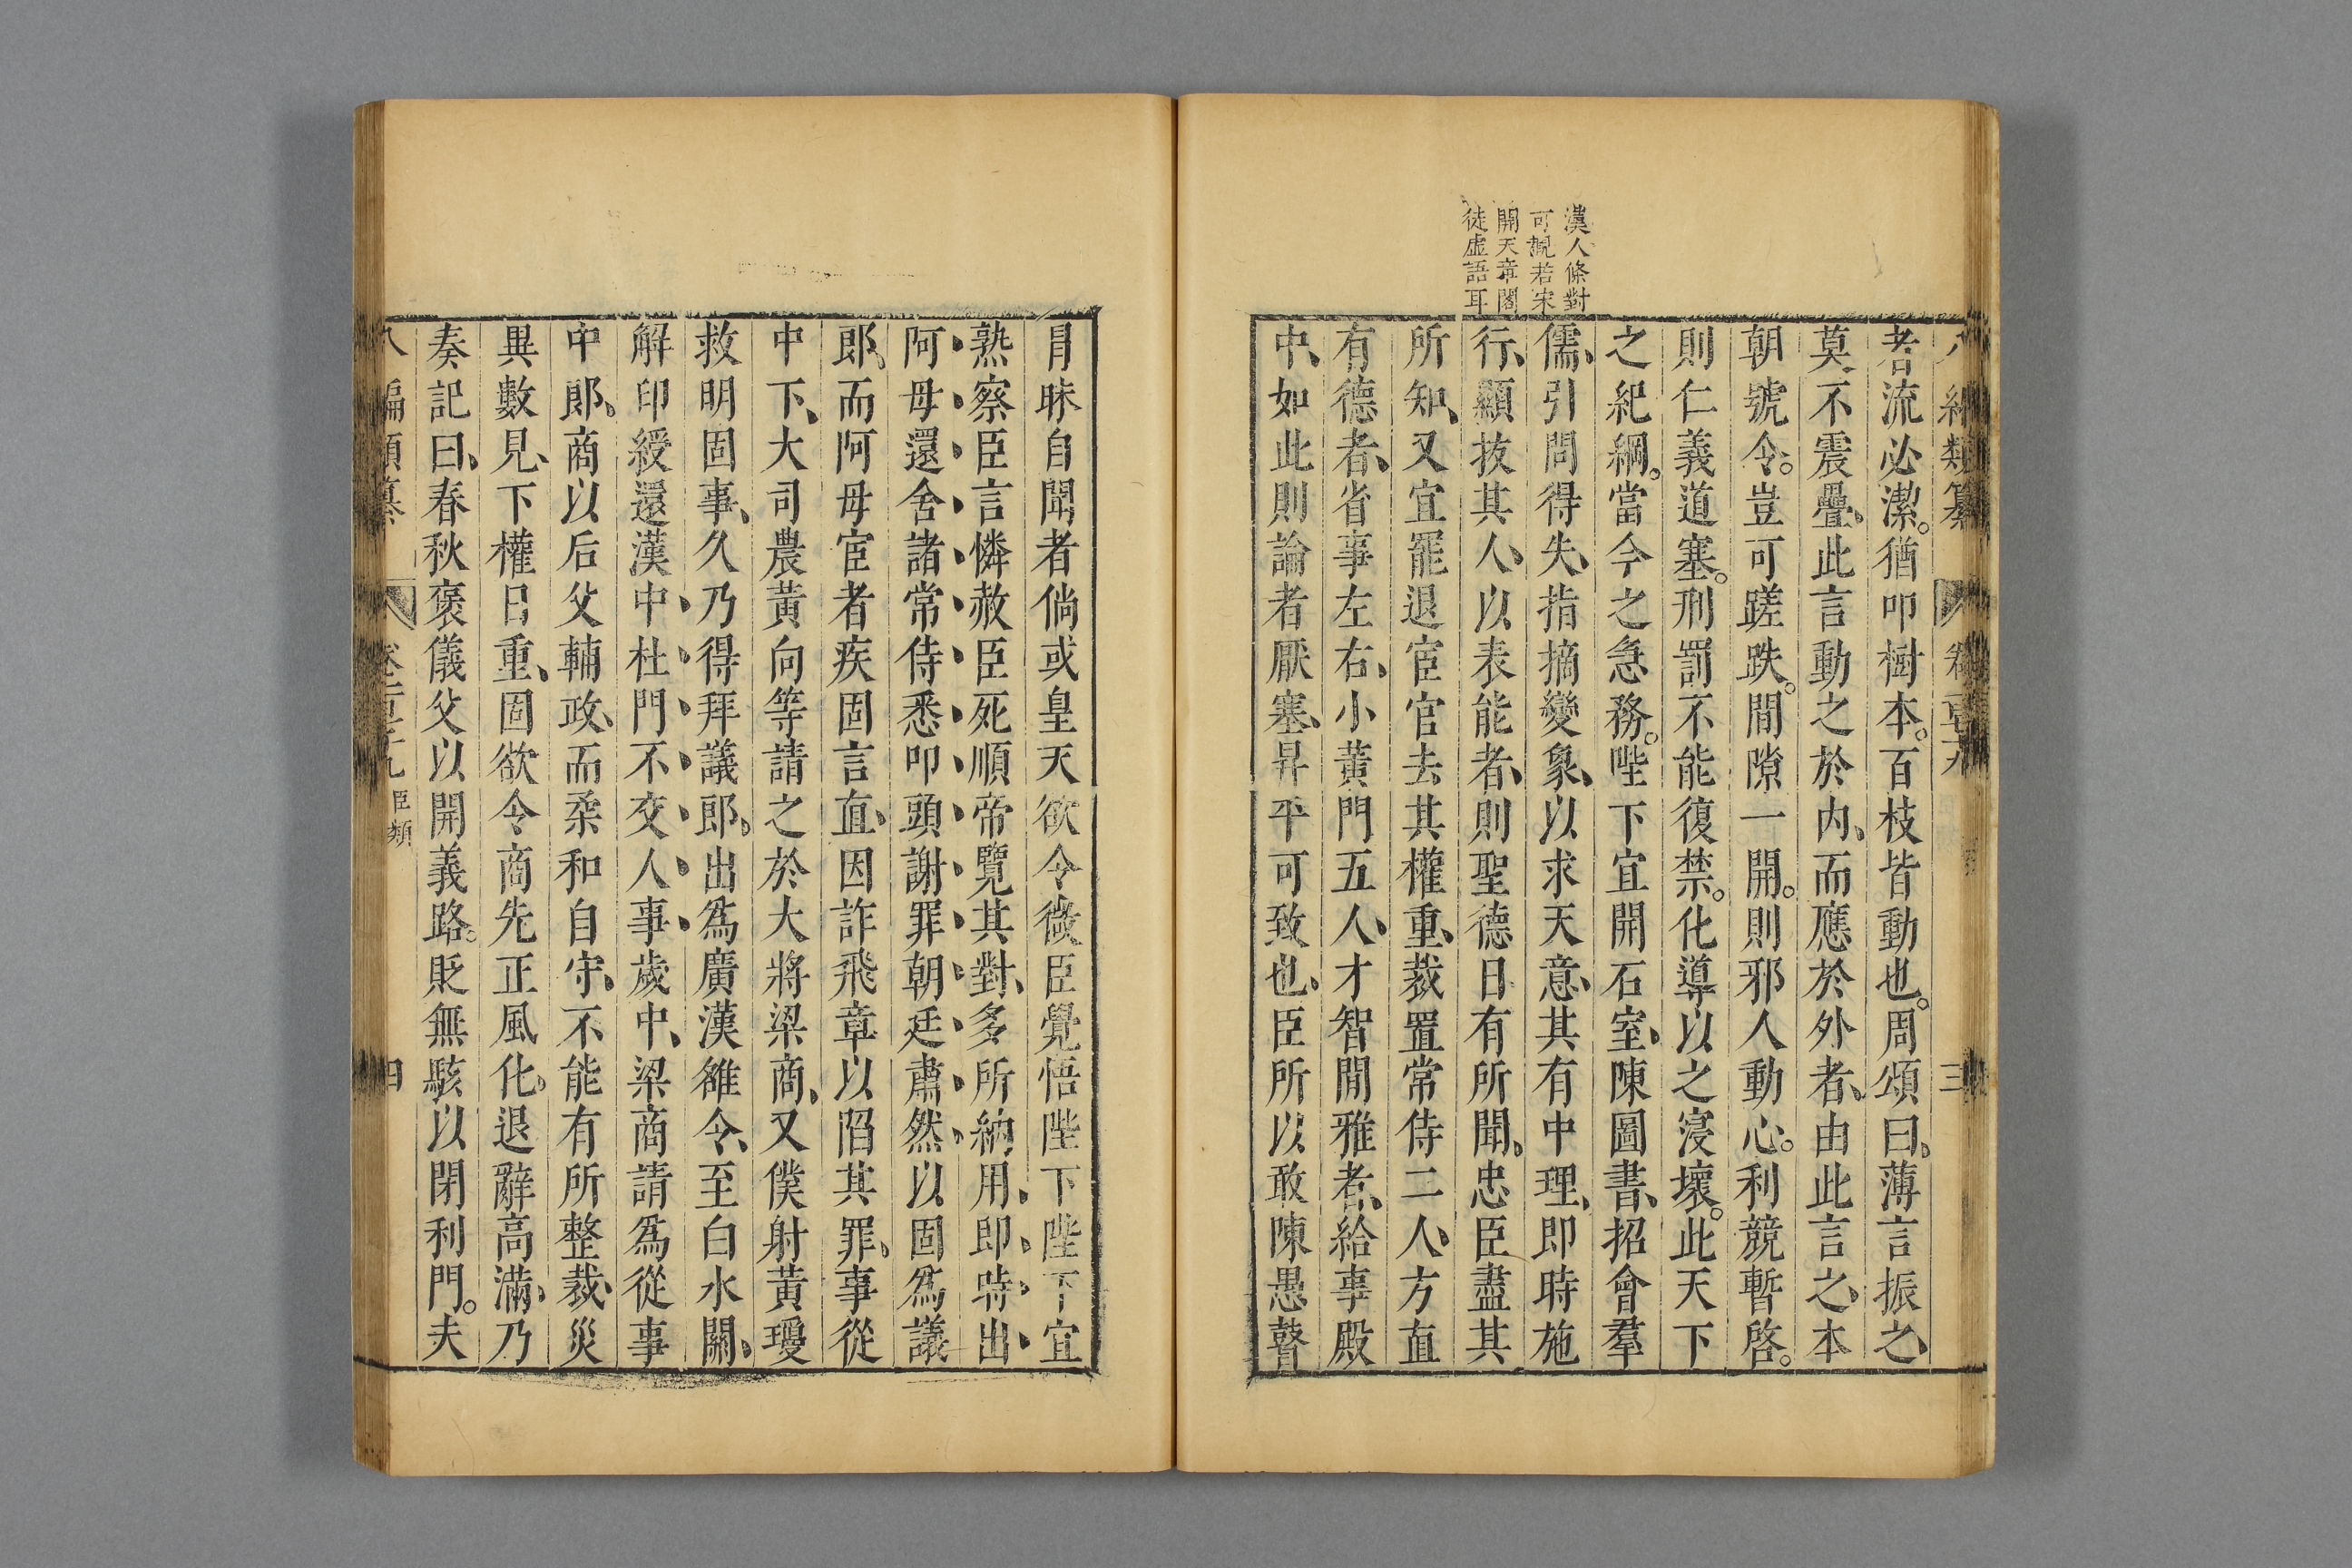 八編類纂 卷 三
者流必潔。猶叩樹本。百枝皆動也。周頌曰、薄言振之、
莫不震疊、此言動之於内、而應於外者、由此言之、本
朝號令。豈可蹉跌。間隙一開。則邪人動心。利競暫啓。
則仁義道塞。刑罰不能復禁。化導以之寖壞。此天下
之紀綱。當今之急務。陛下宜開石室、陳圖書、招會羣
儒、引問得失、指摘變象、以求天意、其有中理、即時施
行、顯拔其人、以表能者、則聖德日有所聞、忠臣盡其
所知、又宜罷退宦官去其權重、裁置常侍二人、方直
有德者、省事左右、小黃門五人、才智閒雅者、給事殿
中、如此則論者厭塞、昇平可致也、臣所以敢陳愚瞽
漢人條對
可覩若宋
開天章閣
徒虛語耳
冐昧自聞者倘或皇天欲令微臣覺悟陛下陛下宜
熟察臣言憐赦臣死順帝覽其對、多所納用、即時出
阿母還舍諸常侍悉叩頭謝罪朝廷肅然以固爲議
郎、而阿母宦者疾固言直、因詐飛章以陷其罪、事從
中下、大司農黃向等請之於大將梁商、又僕射黃瓊
救明固事、久乃得拜議郎。出爲廣漢雒令、至白水關、
解印綬還漢中、杜門不交人事、歲中、梁商請爲從事
中郎、商以后父輔政、而柔和自守、不能有所整裁、災
異數見、下權日重、固欲令商先正風化、退辭高滿、乃
奏記曰、春秋褒儀父以開義路。貶無駭以閉利門。夫
八編類纂 臣類 四